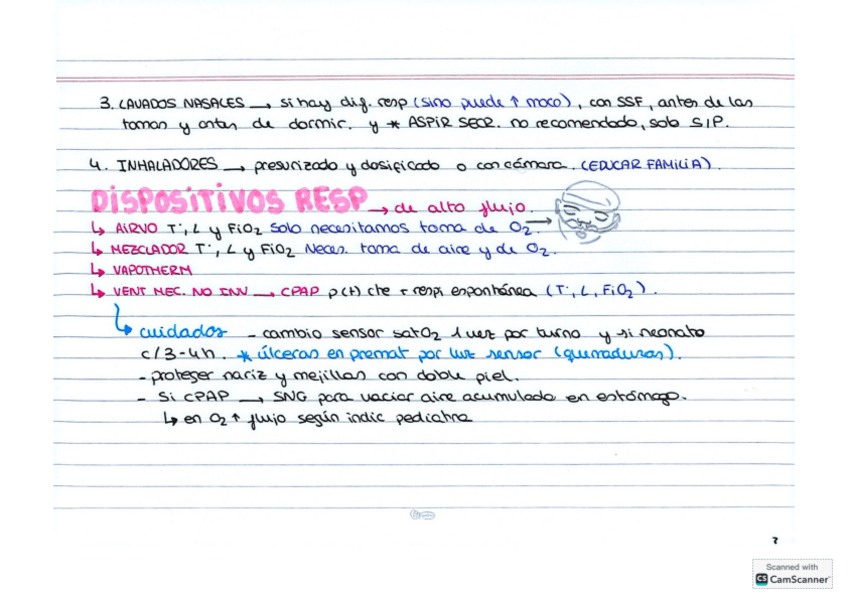 3. LAVADOS NASALES → si hay dif. resp (sino puede ↑ moco), con SSF, antes de las
tomas y antes de dormir. y * ASPIR SECR. no recomendado, solo SIP.
4. INHALADORES → presurizado y dosificado o con cámara. (EDUCAR FAMILIA).
DISPOSITIVOS RESP → de alto flujo.
↳ AIRVO Tª, L y FiO2 Solo necesitamos toma de O2 →
↳ MEZCLADOR Tª, L y FiO2 Neces. toma de aire y de O2.
↳ VAPOTHERM
↳ VENT MEC. NO INV → CPAP p(+) cte + respi espontánea (Tª, L, FiO2).
↳ cuidados - cambio sensor satO2 1 vez por turno y si neonato
c/3-4h. * úlceras en premat por luz sensor (quemaduras).
- proteger nariz y mejillas con doble piel.
- Si CPAP → SNG para vaciar aire acumulado en estómago.
↳ en O2 ↑ flujo según indic pediatra
Scanned with
CS CamScanner